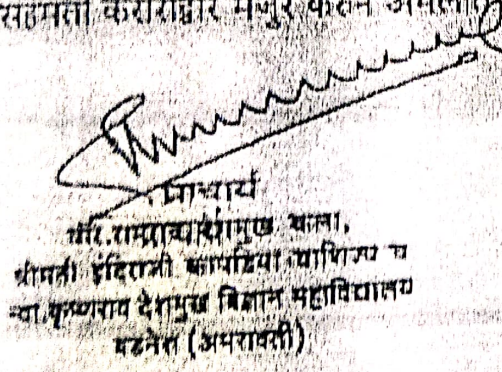 सहमती कराराद्वारे मंजुर करीत
प्राचार्य
देशमुख कला,
श्रीमती इंदिराजी कापडिया वाणिज्य व
न्या.कृष्णराव देशमुख विज्ञान महाविद्यालय
(अमरावती)